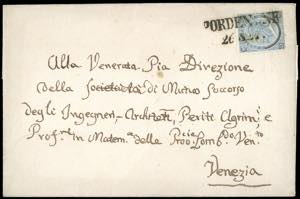 PORDENONE
26
Alla Venerata Pia Direzione
della Società di Mutuo Soccorso
degli Ingegneri, Architetti, Periti Agrim.i e
Prof.ri in Matem.a delle Prov.cie Lomb.do Ven.to
Venezia